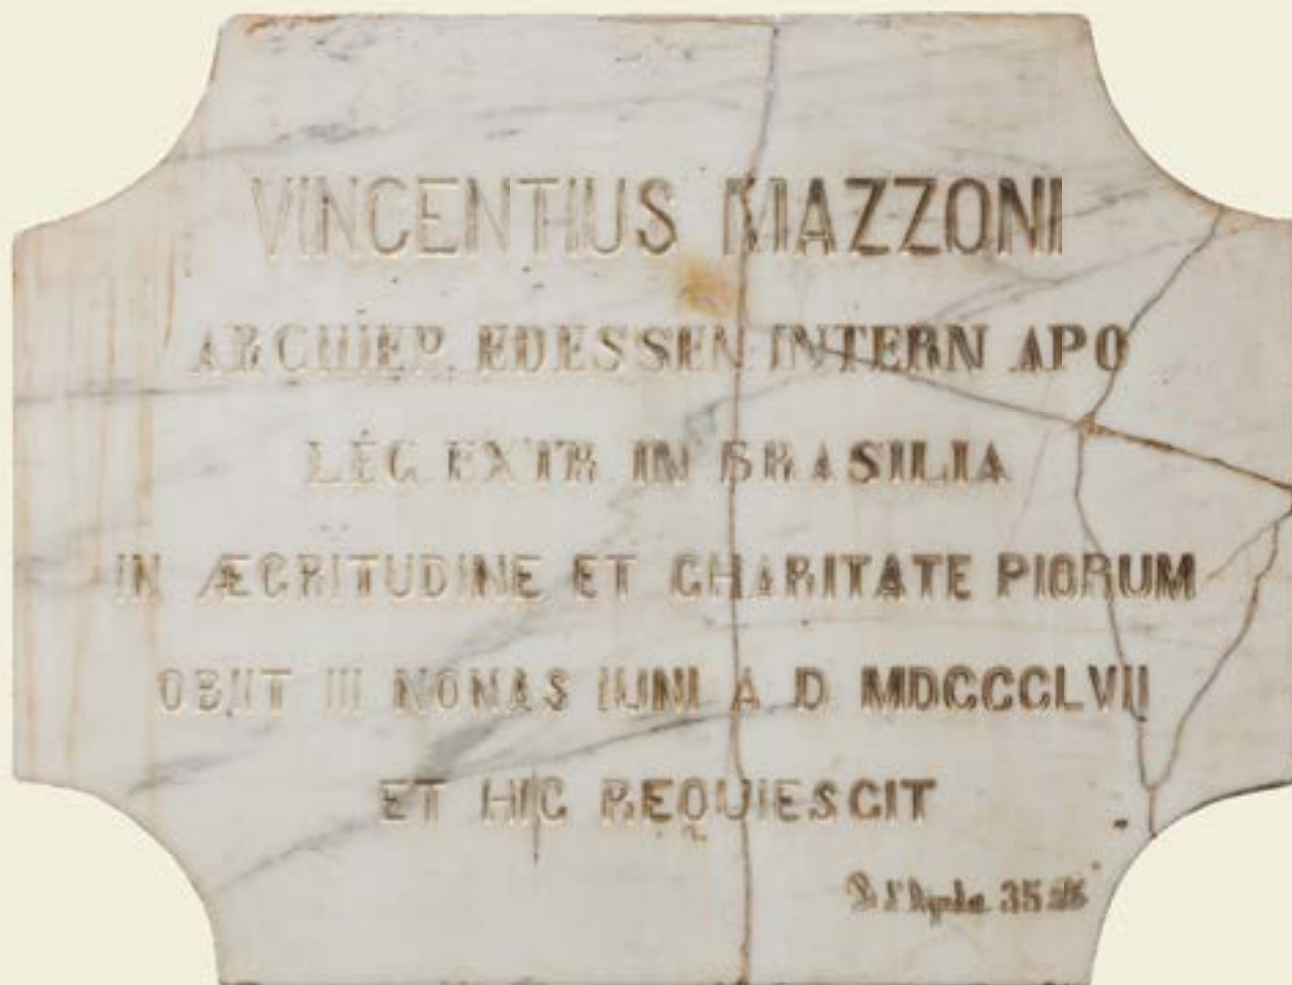 VINCENTIUS MAZZONI
ARCHIEP. EDESSEN INTERN APO
LEG EXTR IN BRASILIA
IN ÆGRITUDINE ET CHARITATE PIORUM
OBIIT III NONAS IUNI A D MDCCCLVII
ET HIC REQUIESCIT
35